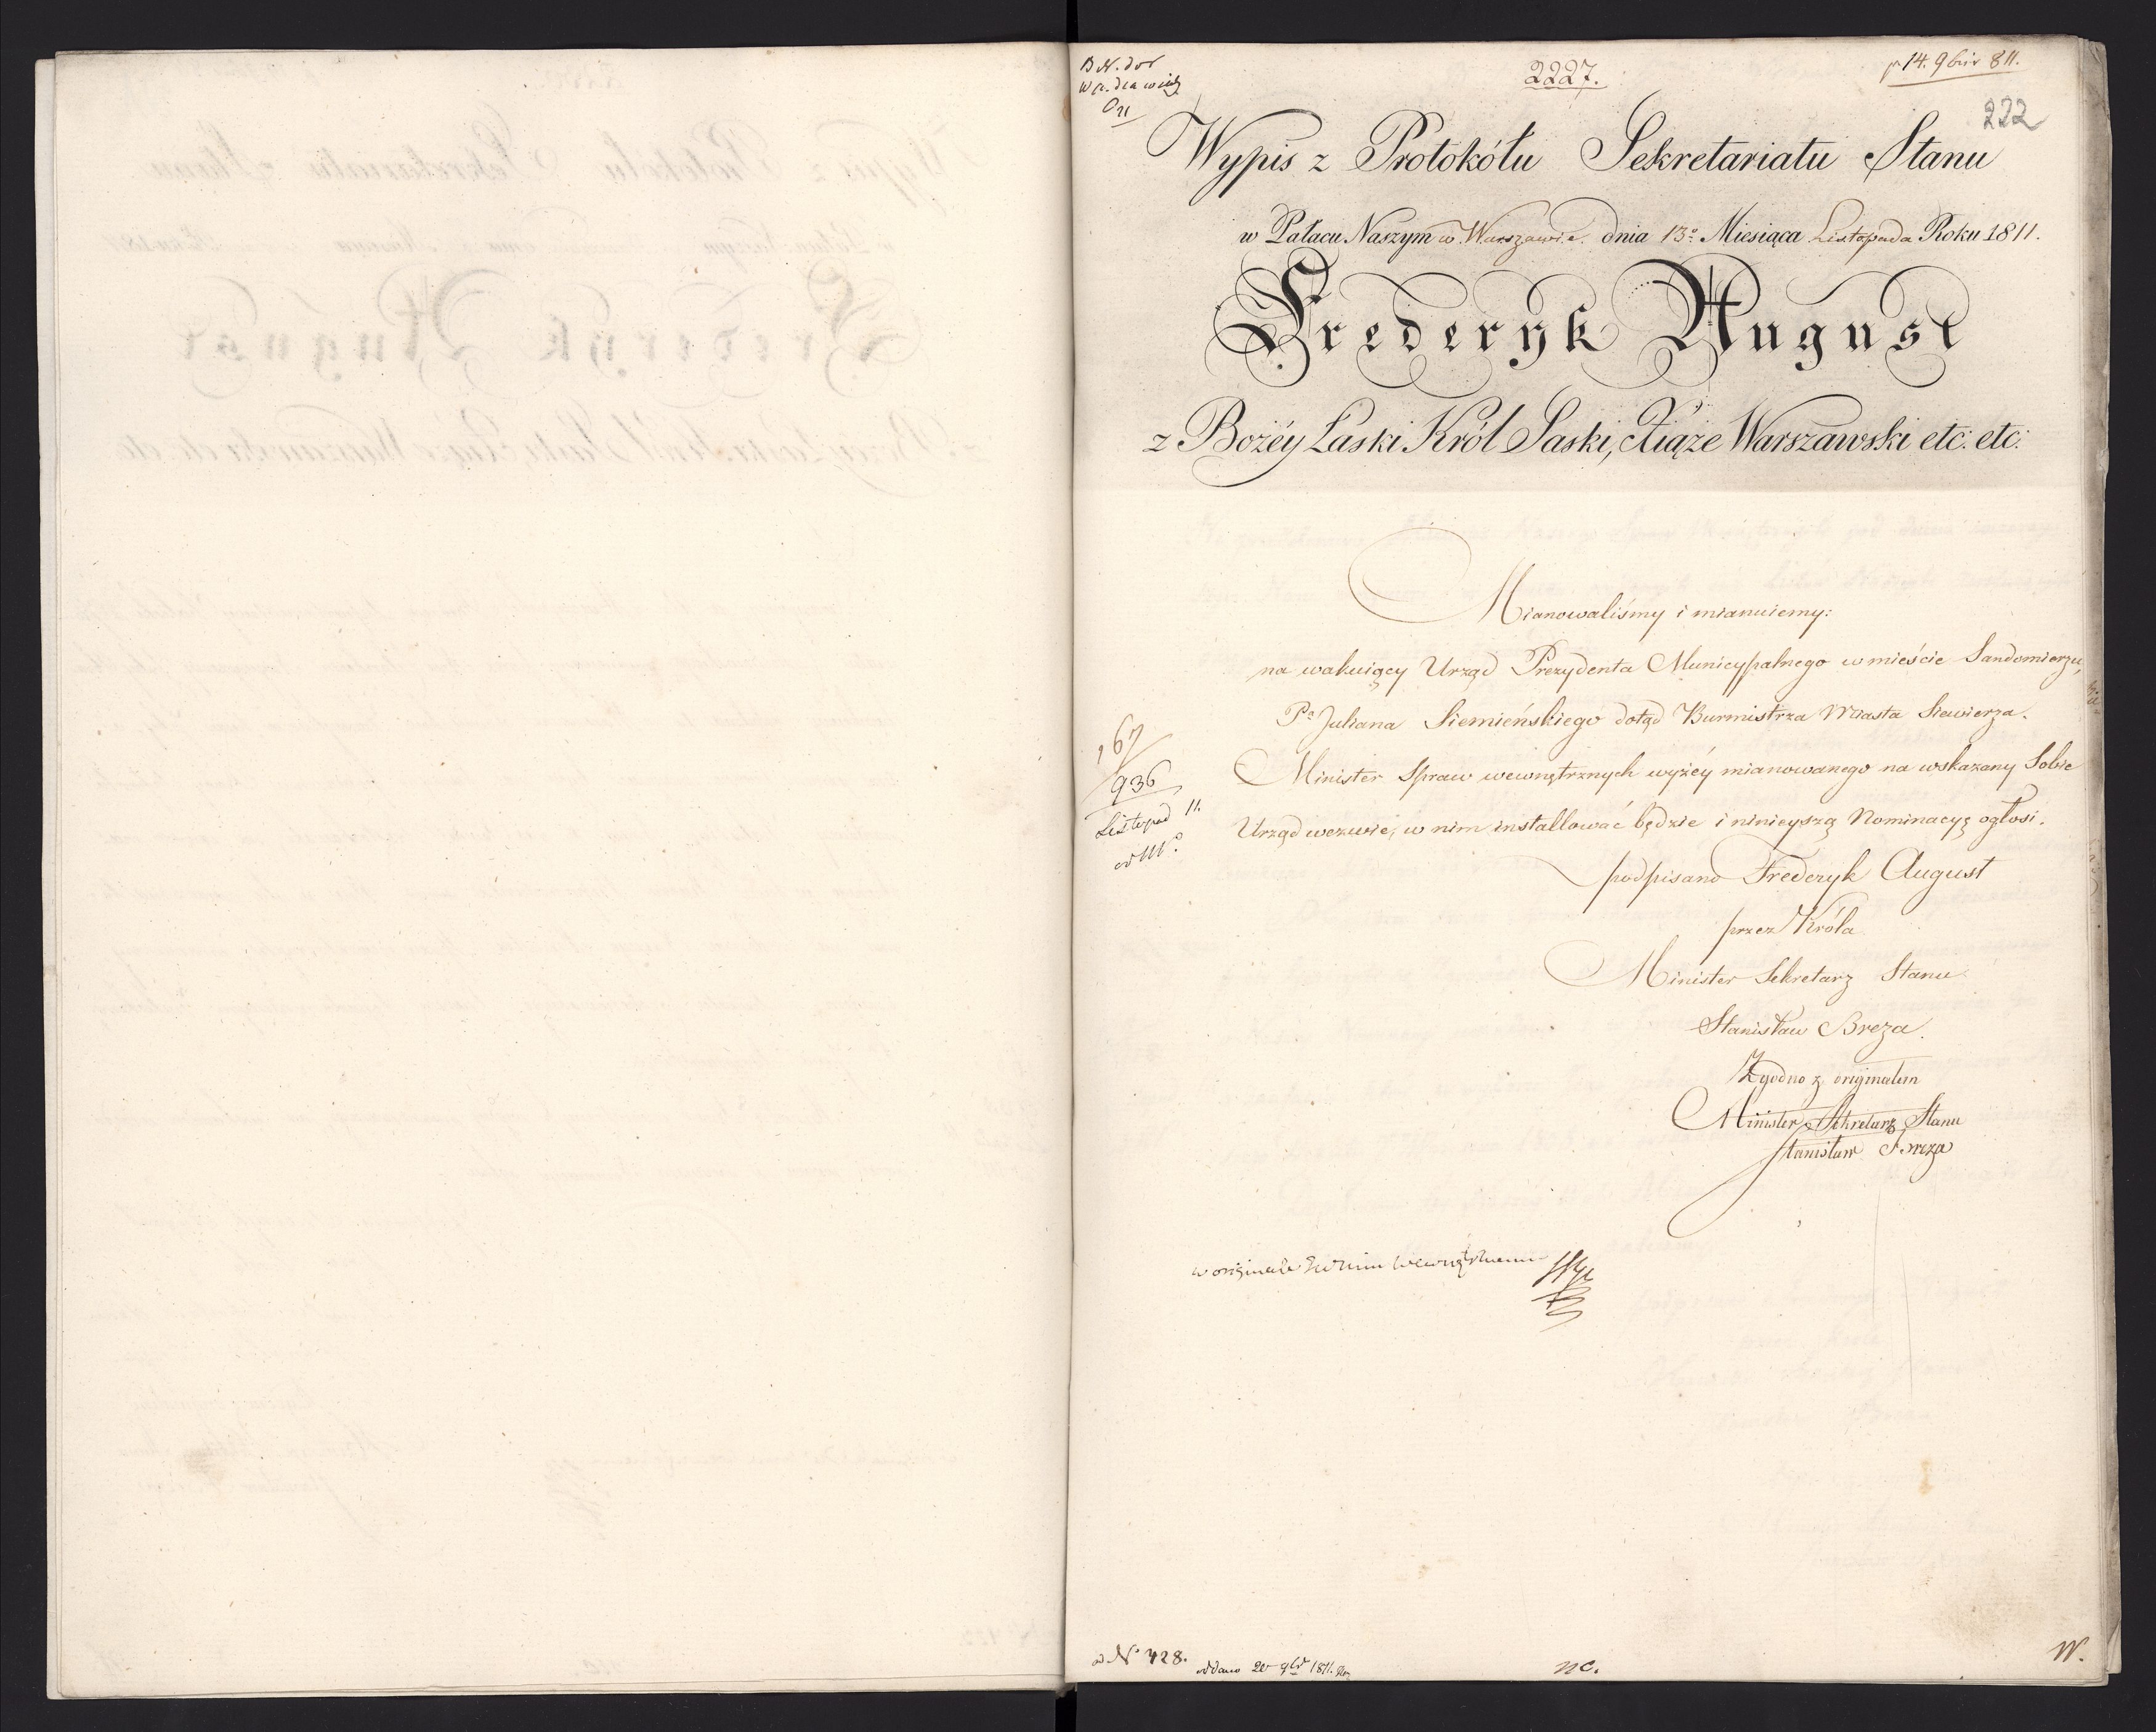 2227.
pr 14. 9bris 811.
222
Wypis z Protokółu Sekretariatu Stanu
w Pałacu Naszym w Warszawie dnia 13º Miesiąca Listopada Roku 1811.
Frederyk August
z Bożéy Łaski Król Saski, Xiąże Warszawski etc: etc:
Mianowaliśmy i mianuiemy:
na wakuiący Urząd Prezydenta Municypalnego w mieście Sandomierzu,
Pa Juliana Siemieńskiego dotąd Burmistrza Miasta Siewierza.
Minister Spraw wewnętrznych wyżéy mianowanego na wskazany Sobie
Urząd wezwie, w nim installować będzie i ninieyszą Nominacyą ogłosi.
167
936
Listopad 11.
podpisano Frederyk August
przez Króla
Minister Sekretarz Stanu
Stanisław Breza.
Zgodno z originałem
Minister Sekretarz Stanu
Stanisław Breza
w originale
N. 428.
oddano 20 9br 1811.
nc.
W.